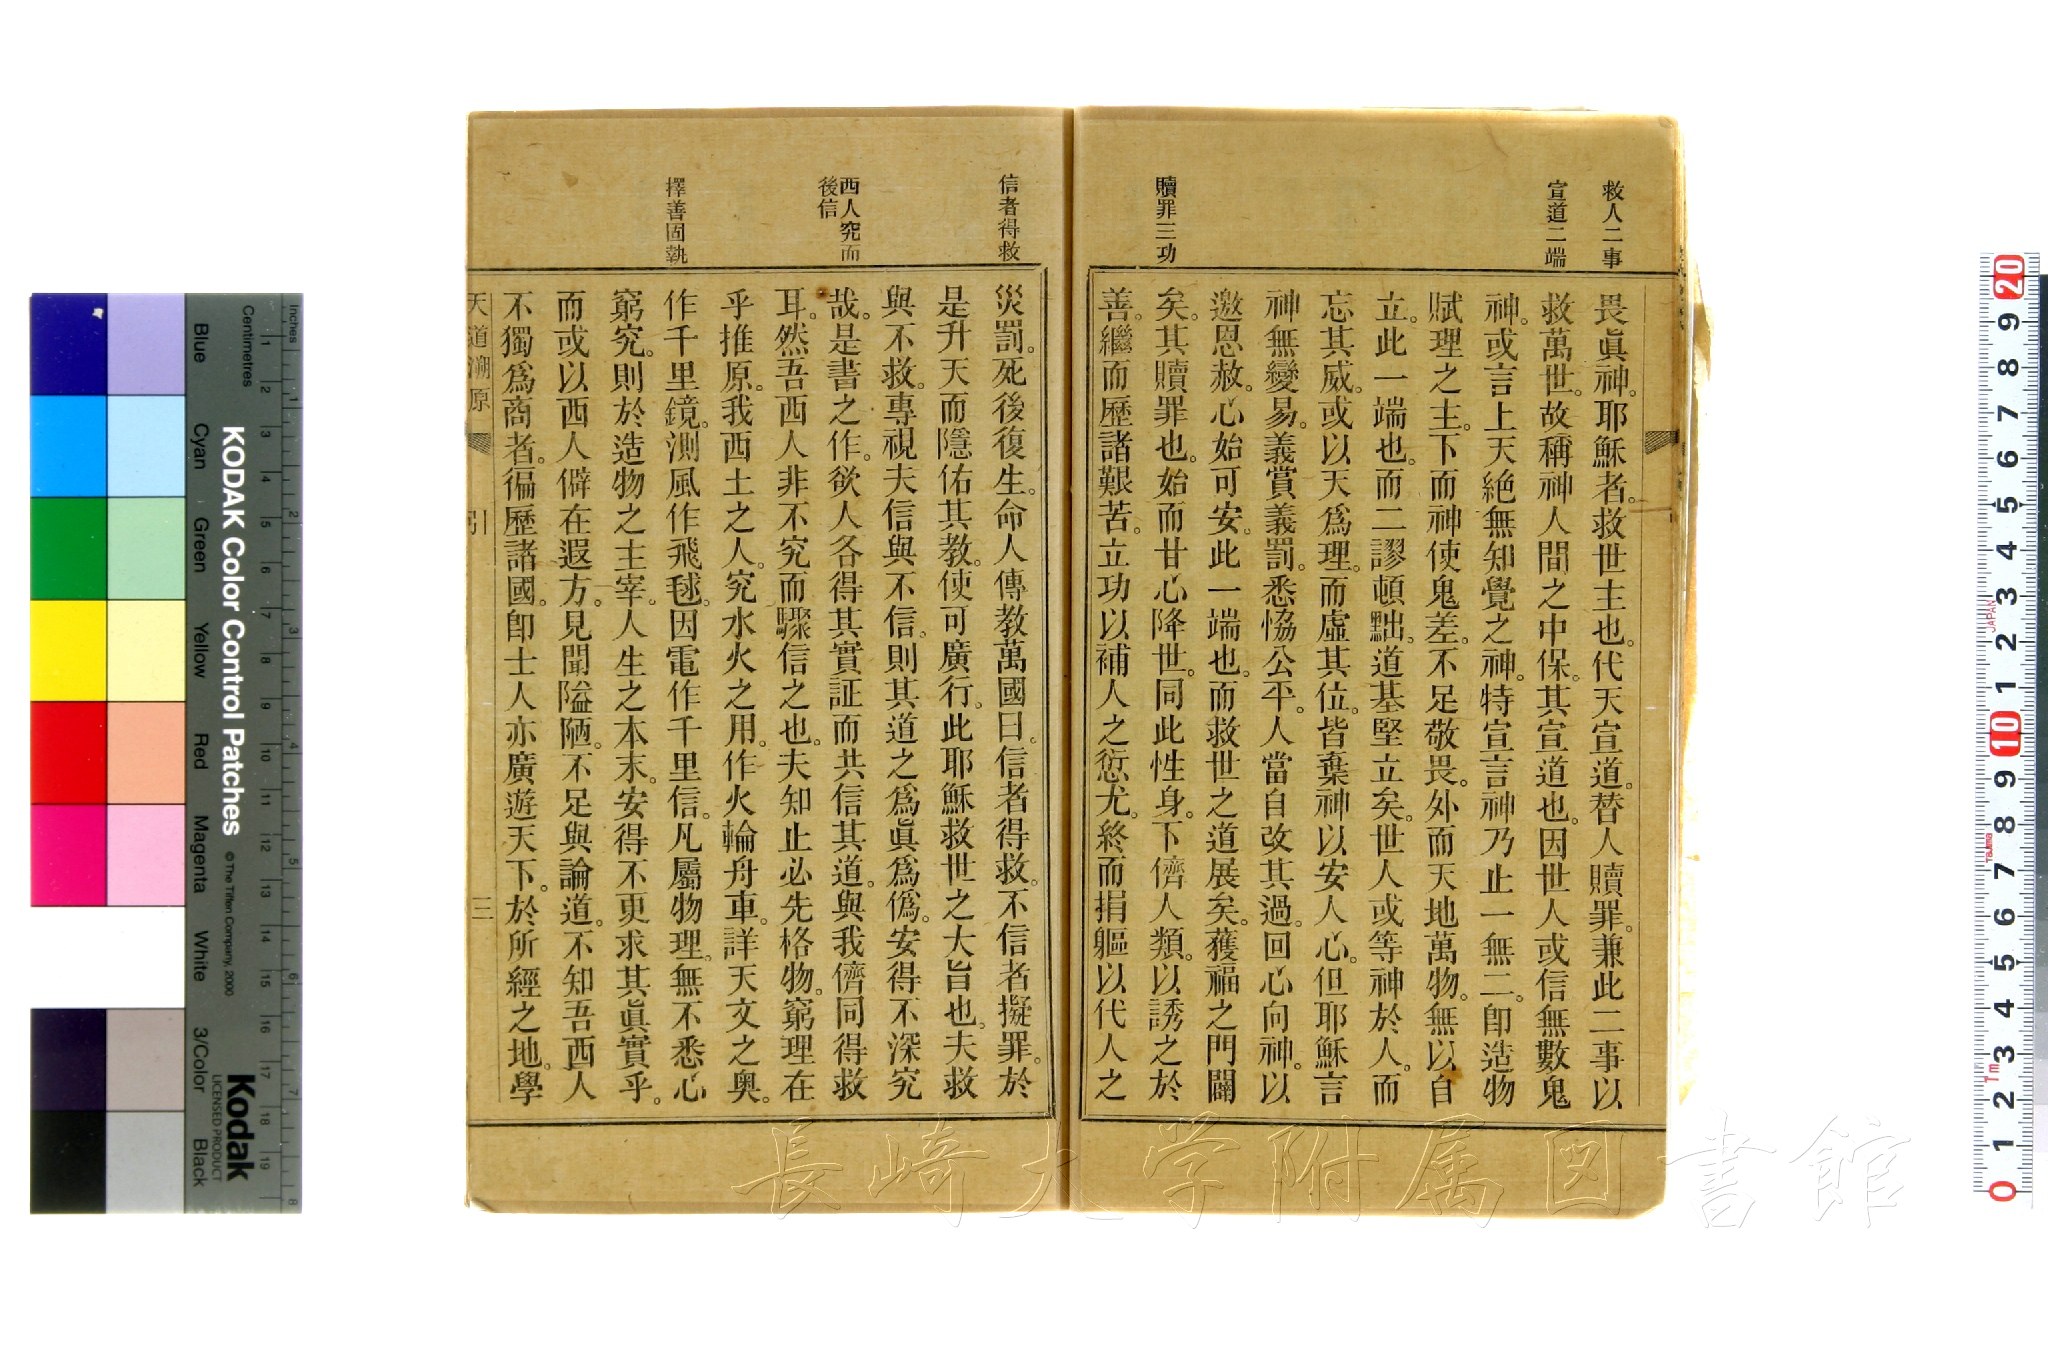 救人二事
宣道二端
贖罪三功
畏眞神。耶穌者。救世主也。代天宣道。替人贖罪。兼此二事以
救萬世。故稱神人間之中保。其宣道也。因世人或信無數鬼
神。或言上天絕無知覺之神。特宣言神乃止一無二。卽造物
賦理之主。下而神使鬼差。不足敬畏。外而天地萬物。無以自
立。此一端也。而二謬頓黜。道基堅立矣。世人或等神於人。而
忘其威。或以天爲理。而虛其位。皆棄神以安人心。但耶穌言
神無變易。義賞義罰。悉恊公平。人當自改其過。回心向神。以
邀恩赦。心始可安。此一端也。而救世之道展矣。獲福之門闢
矣。其贖罪也。始而甘心降世。同此性身。下儕人類。以誘之於
善。繼而歷諸艱苦。立功以補人之愆尤。終而捐軀以代人之
信者得救
西人究而
後信
擇善固執
災罰。死後復生。命人傳教萬國曰。信者得救。不信者擬罪。於
是升天而隱佑其教。使可廣行。此耶穌救世之大旨也。夫救
與不救。專視夫信與不信。則其道之爲眞爲僞。安得不深究
哉。是書之作。欲人各得其實証而共信其道。與我儕同得救
耳。然吾西人非不究而驟信之也。夫知止必先格物。窮理在
乎推原。我西土之人。究水火之用。作火輪舟車。詳天文之奧。
作千里鏡。測風作飛毬。因電作千里信。凡屬物理。無不悉心
窮究。則於造物之主宰。人生之本末。安得不更求其眞實乎。
而或以西人僻在遐方。見聞隘陋。不足與論道。不知吾西人
不獨爲商者。徧歷諸國。卽士人亦廣遊天下。於所經之地。學
天道溯原 引 三
KODAK Color Control Patches
© The Tiffen Company, 2000
Kodak
LICENSED PRODUCT
Inches
Centimetres
Blue Cyan Green Yellow Red Magenta White 3/Color Black
長崎大学附属図書館
JAPAN